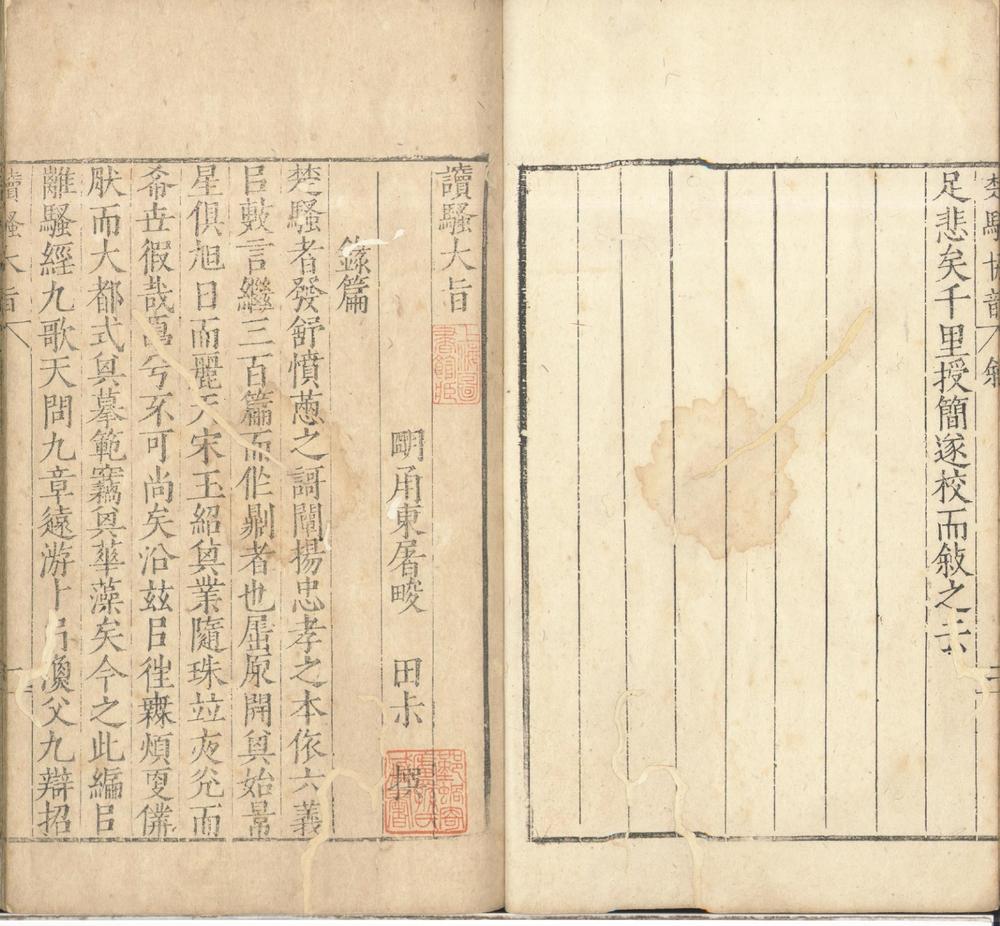 楚騷協韻 敘
足悲矣千里授簡遂校而敘之云
讀騷大旨
上海圖書館藏
明甬東屠畯 田叔 撰
錄篇
楚騷者發舒憤懣之謌闡揚忠孝之本依六義
㠯敷言繼三百篇而作𠟭者也屈原開其始景
星俱旭日而麗天宋玉紹其業隨珠竝夜光而
希𠀍徦哉邈兮不可尚矣沿茲㠯徃霖煩更僕
肰而大都式其摹範竊其華藻矣今之此編㠯
離騷經九歌天問九章遠游卜居漁父九辯招
讀騷大旨